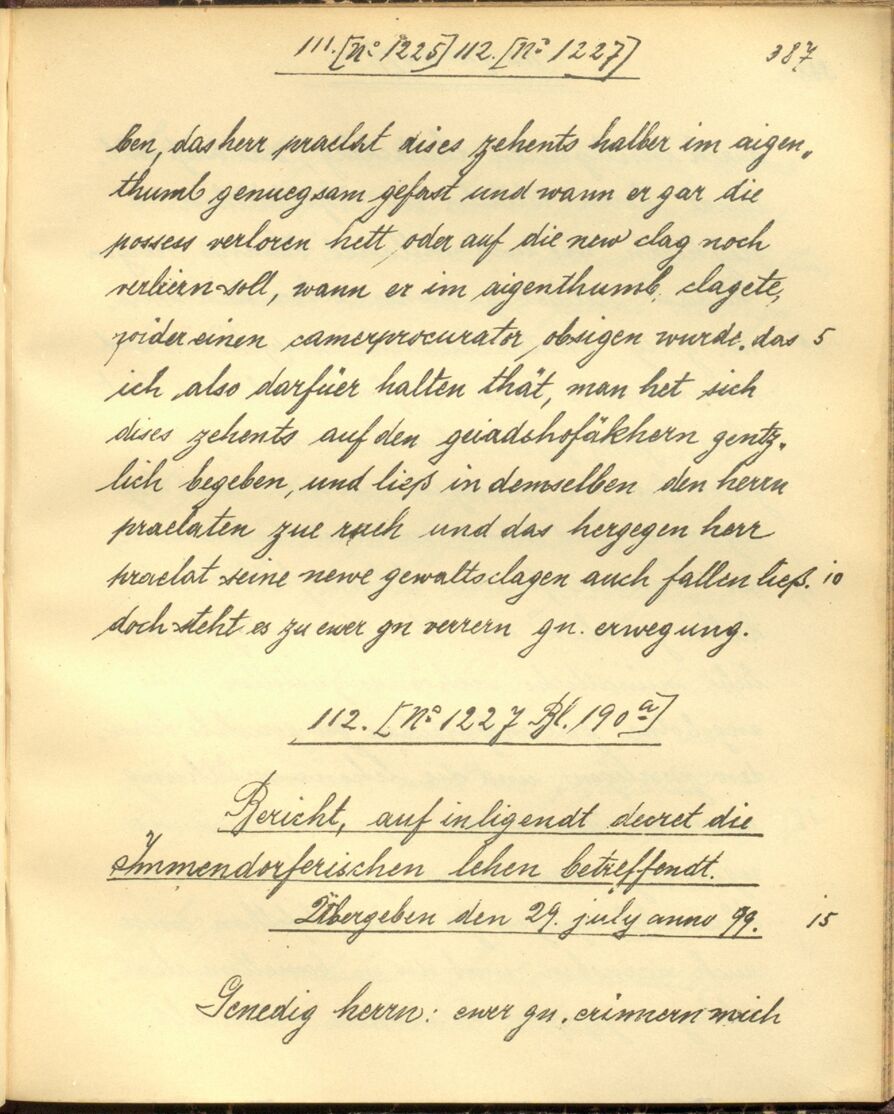 111. [No 1225] 112. [No 1227] 387
ben, das herr praelat dises zehents halber im aigen„
thumb genuegsam gefast und wann er gar die
possess verloren hett, oder auf die new clag noch
verliern soll, wann er im aigenthumb clagete,
wider einen camerprocurator obsigen wurde. das 5
ich also darfüer halten thät, man het sich
dises zehents auf den geiadshofäkhern gentz„
lich begeben, und ließ in demselben den herrn
praelaten zue rueh und das hergegen herr
praelat seine newe gewaltsclagen auch fallen ließ. 10
doch steht es zu ewer gn verrern gn. erwegung.
112. [No 1227 Bl. 190a]
Bericht, auf inligendt decret die
Immendorferischen lehen betreffendt.
Übergeben den 29. july anno 99. 15
Genedig herrn: ewer gn. erinnern mich